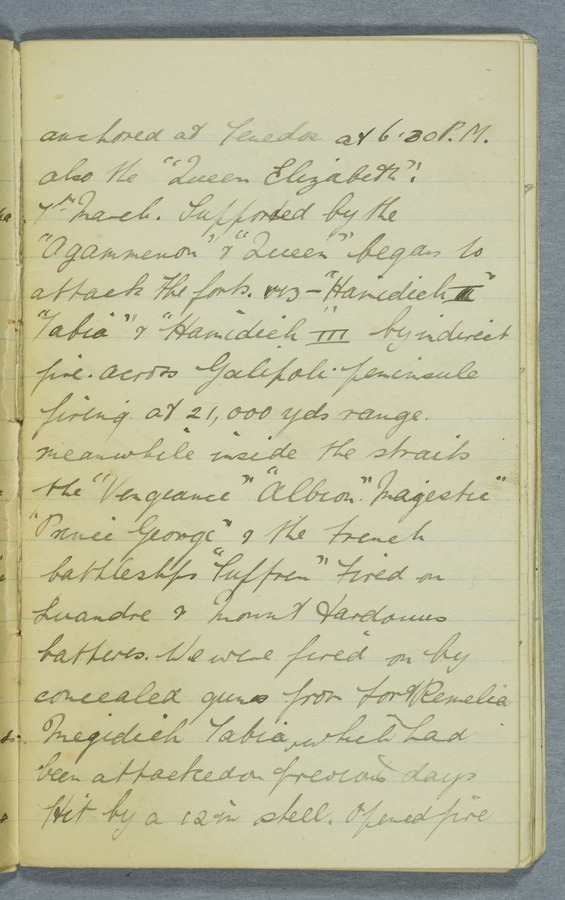 anchored at Tenedos at 6.30 P.M.
also the "Queen Elizabeth".
7th March. Supported by the
"Agammenon" & "Queen" began to
attack the forts. "Hamidieh II"
"Tabia" & "Hamidieh III" by indirect
fire. across Galipoli peninsule
firing at 21,000 yds range.
meanwhile inside the straits
the "Vengeance" "Albion" "Majestic"
"Prince George" & the French
battleships "Suffren" fired on
& Mount Dardanus
batteries. We were fired on by
concealed guns from fort Remelia
Megidieh Tabia, which had
been attacked on previous days
Hit by a 12 in shell. Opened fire